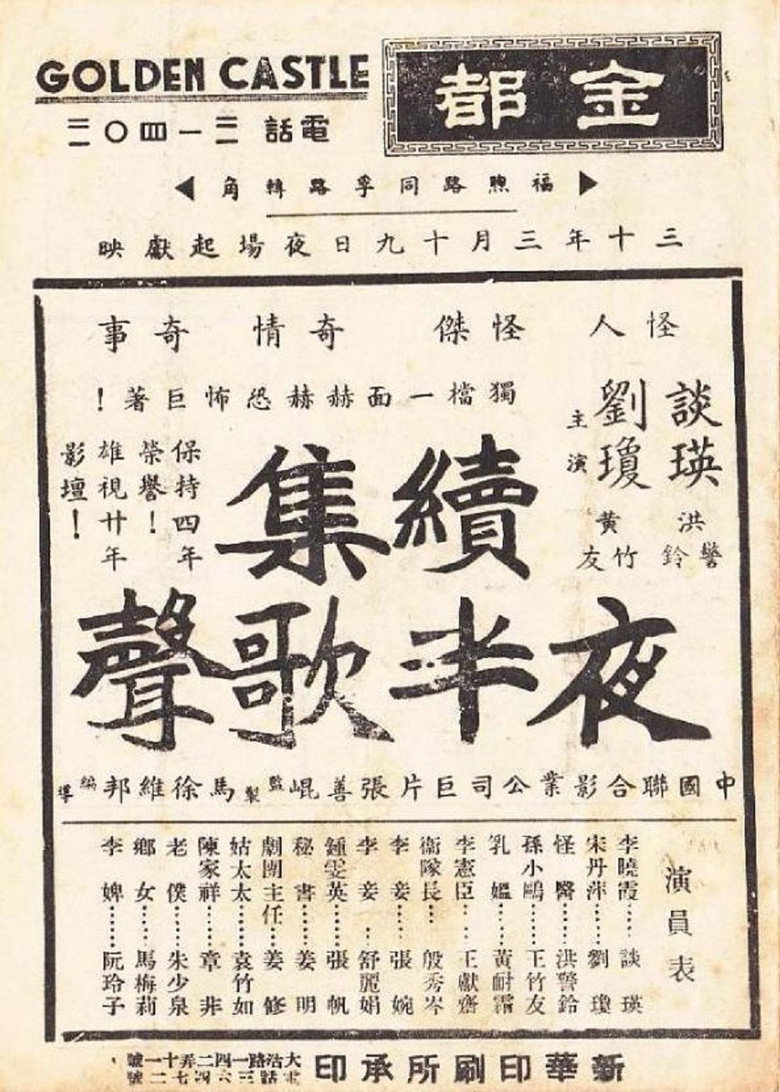 GOLDEN CASTLE
金都
電話 三一四〇三
福煦路同孚路轉角
三十年三月十九日夜場起獻映
怪人 怪傑 奇情 奇事
談瑛
劉瓊
主演
洪警鈴
黃竹友
獨檔一面赫赫恐怖巨著！
保持四年
榮譽！
雄視廿年
影壇！
續集
夜半歌聲
中國聯合影業公司巨片張善崐監製馬徐維邦編導
演員表
李曉霞……談瑛
宋丹萍……劉瓊
怪醫……洪警鈴
孫小鷗……王竹友
乳媼……黃耐霜
李憲臣……王獻齋
衛隊長……殷秀岑
李妾……張婉
李妾……舒麗娟
鍾雯英……張帆
秘書……姜明
劇團主任……姜修
姑太太……袁竹如
陳家祥……章非
老僕……朱少泉
鄉女……馬梅莉
李婢……阮玲子
新華印刷所承印